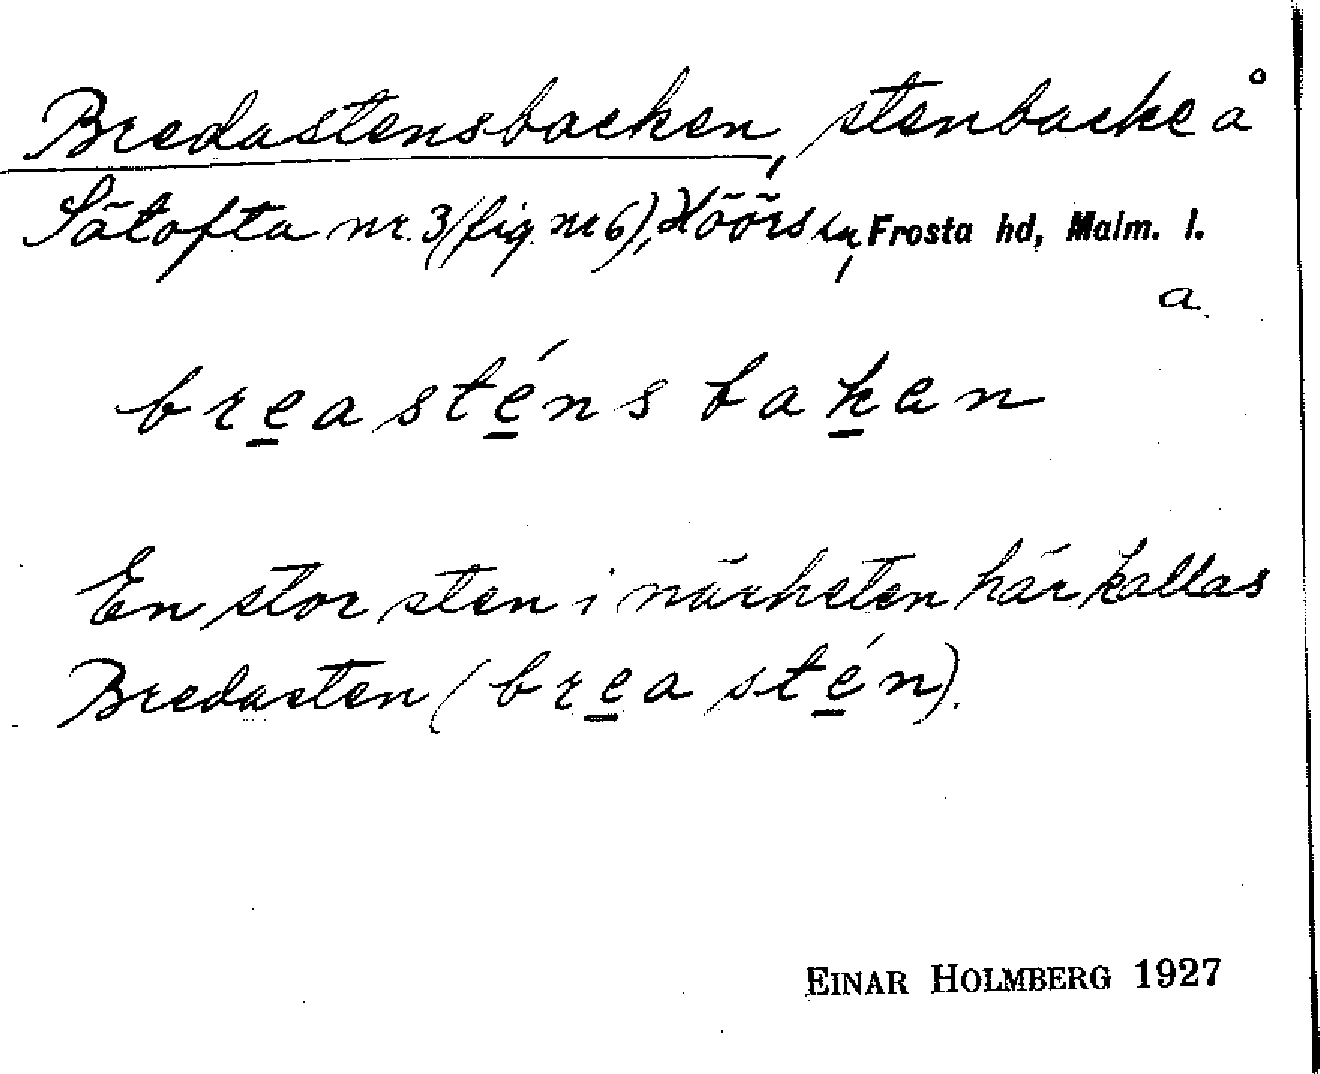 Bredastensbacken, stenbacke å
Sätofta nr. 3 (fig. nr 6), Höörs sn, Frosta hd, Malm. l.
a.
breasténs baken
En stor sten i närheten här kallas
Bredasten (breastén).
EINAR HOLMBERG 1927